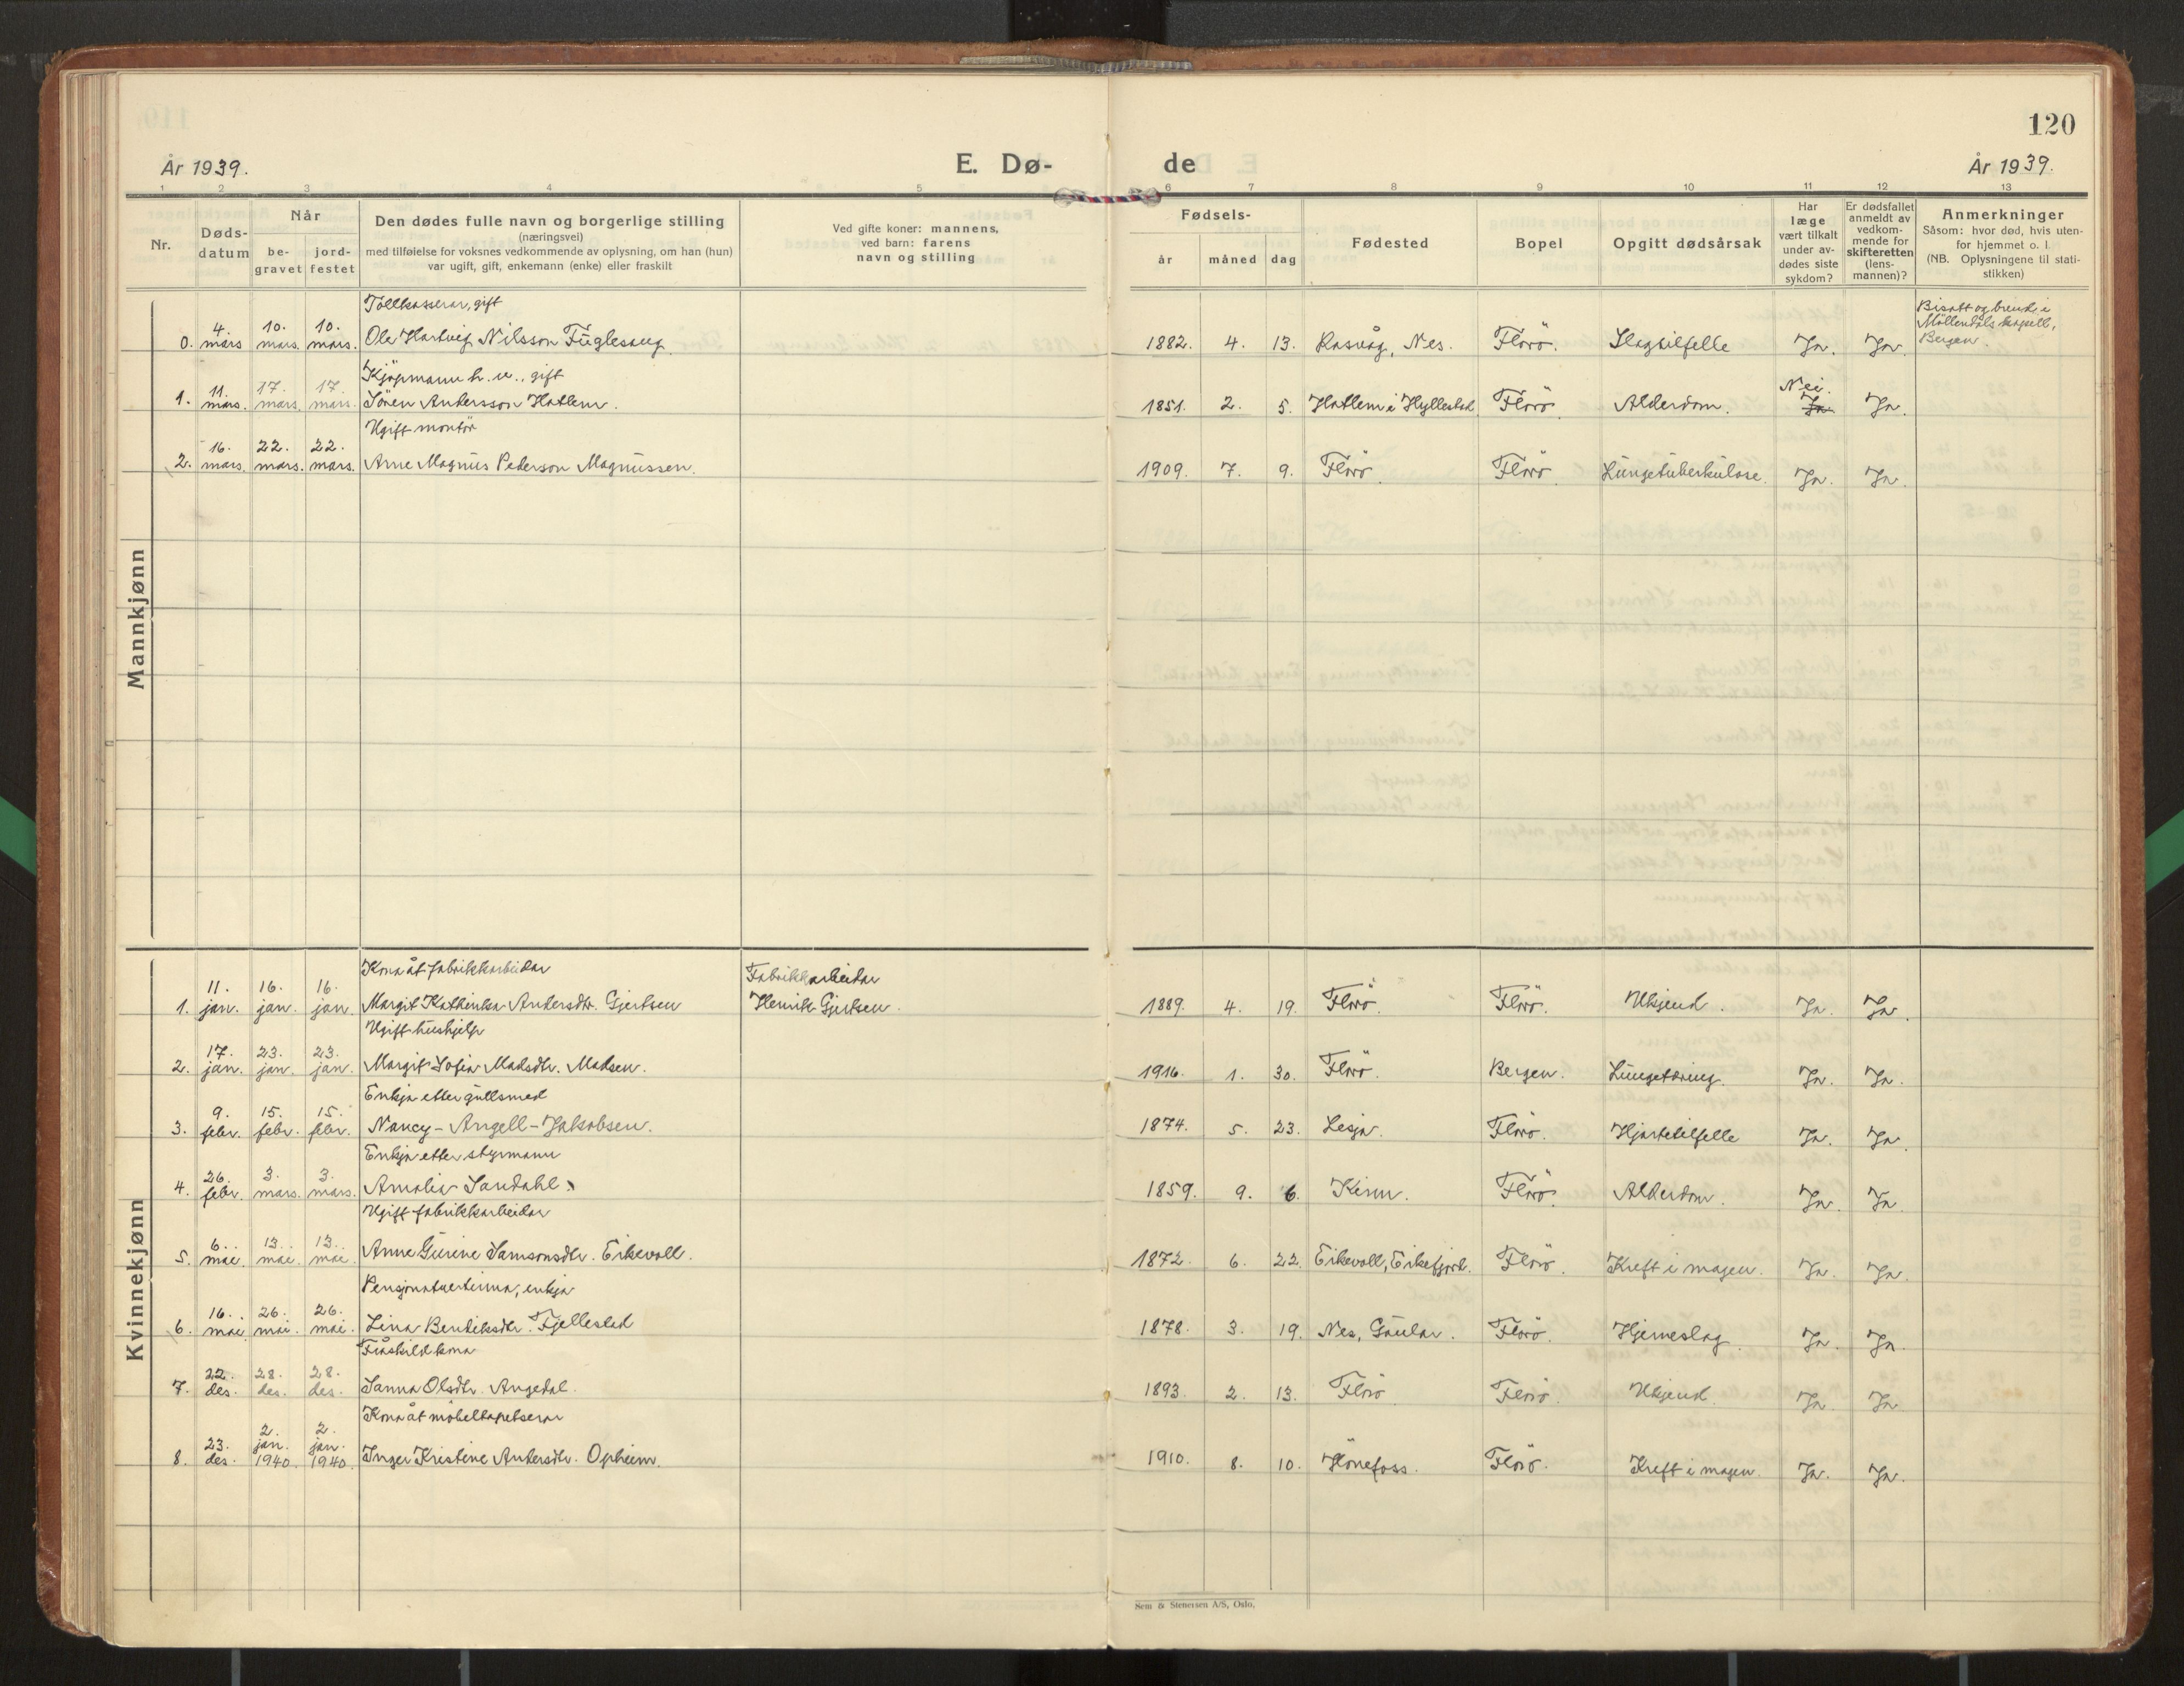 120
År 1939.
E. Dø-
de
År 1939.
1 2 3 4 5 6 7 8 9 10 11 12 13
Nr.
Døds-
datum
Når
be-
gravet
jord-
festet
Den dødes fulle navn og borgerlige stilling
(næringsvei)
med tilføielse for voksnes vedkommende av oplysning, om han (hun)
var ugift, gift, enkemann (enke) eller fraskilt
Ved gifte koner: mannens,
ved barn: farens
navn og stilling
Fødsels-
år måned dag
Fødested
Bopel
Opgitt dødsårsak
Har
læge
vært tilkalt
under av-
dødes siste
sykdom?
Er dødsfallet
anmeldt av
vedkom-
mende for
skifteretten
(lens-
mannen)?
Anmerkninger
Såsom: hvor død, hvis uten-
for hjemmet o. l
(NB. Oplysningene til stati-
stikken)
Mannkjønn
Tollkasserar, gift
0. 4. mars 10. mars. 10. mars. Ole Hartvig Nilsson Fuglesang 1882. 4. 13. Rasvåg, Nes. Florö. Slagtilfelle Ja. Ja.
Bisatt og brend i
Möllendals kapell,
Bergen.
Kjöpmann h. v., gift
1. 11. mars. 17. mars. 17. mars. Sören Andersson Hatlem. 1851. 2. 5. Hatlem i Hyllestad Florö. Alderdom. Nei. Ja. Ja.
Ugift montör
2. 16. mars. 22. mars. 22. mars. Arne Magnus Pederson Magnussen. 1909. 7. 9. Florö. Florö. Lungetuberkulose. Ja. Ja.
Kvinnekjønn
Kona åt fabrikkarbeidar Fabrikkarbeidar
1. 11. jan. 16. jan. 16. jan. Margit Kathinka Andersdtr. Gjertsen Henrik Gjertsen. 1889. 4. 19. Florö. Florö. Ukjend. Ja. Ja.
Ugift hushjelp
2. 17. jan. 23. jan. 23. jan. Margit Sofia Madsdtr. Madsen. 1916. 1. 30. Florö. Bergen. Lungetæring. Ja. Ja.
Enkja etter gullsmed
3. 9. febr. 15. febr. 15. febr. Nancy - Angell - Jakobsen. 1874. 5. 23. Lesja. Florö. Hjartetilfelle Ja. Ja.
Enkja etter styrmann
4. 26. febr. 3. mars. 3. mars. Amalia Sandahl. 1859. 9. 6. Kinn. Florö. Alderdom. Ja. Ja.
Ugift fabrikkarbeidar
5. 6. mai. 13. mai. 13. mai. Anne Gurine Samsonsdtr. Eikevoll. 1872. 6. 22. Eikevoll, Eikefjord. Florö. Kreft i magen. Ja. Ja.
Pensjonatvertinna, enkja
6. 16. mai. 26. mai. 26. mai. Lina Bendiksdtr. Fjellestad 1878. 3. 19. Nes, Gaular. Florö. Hjerneslag. Ja. Ja.
Fråskild kona
7. 22. des. 28. des. 28. des. Sanna Olsdtr. Angedal. 1893. 2. 13. Florö Florö. Ukjend. Ja. Ja.
Kona åt möbeltapetserar
8. 23. des. 2. jan. 1940. 2. jan. 1940. Inger Kristine Andersdtr. Opheim. 1910. 8. 10. Hönefoss. Florö. Kreft i magen. Ja. Ja.
Sem & Stenersen A/S, Oslo.